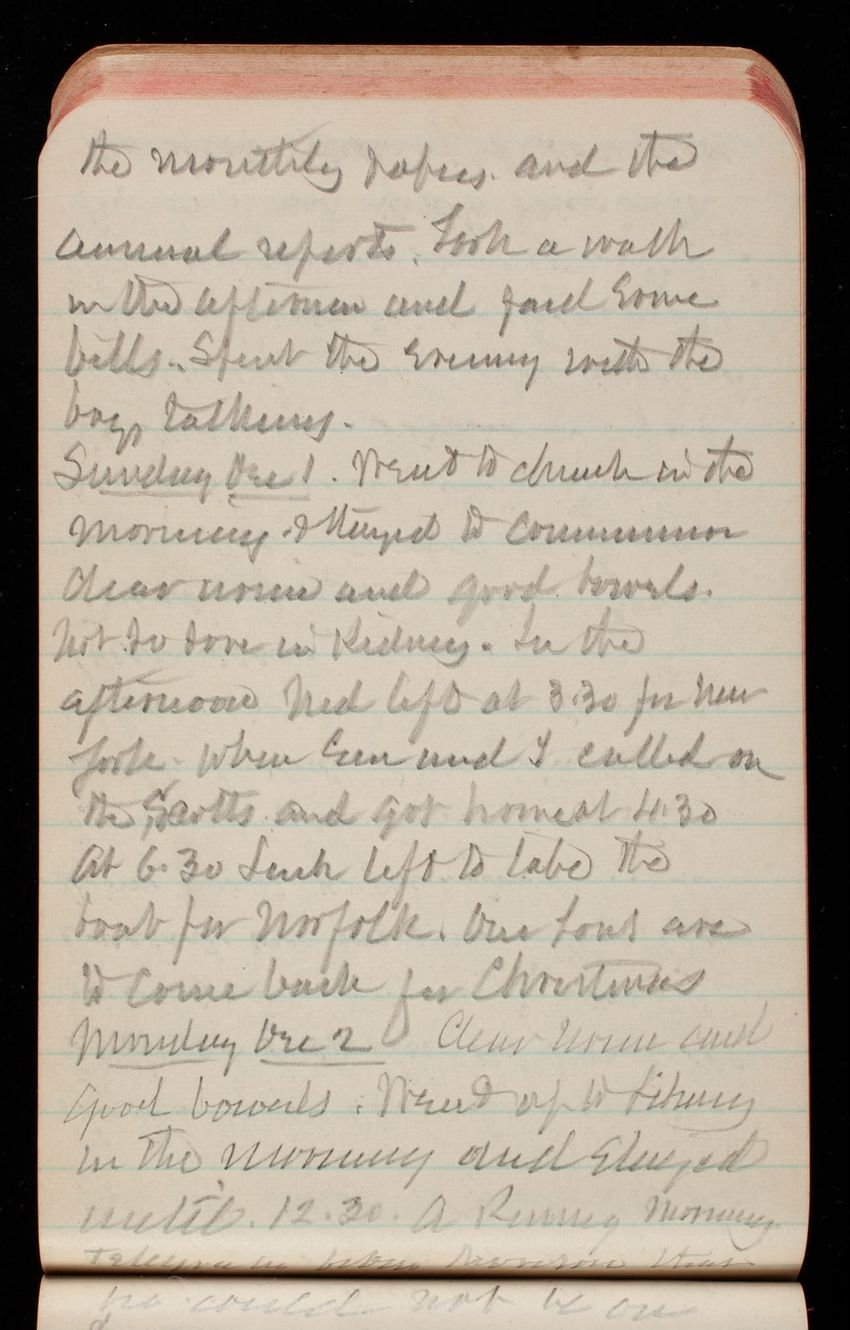 the monthly papers and the
annual reports. Took a walk
in the afternoon and paid some
bills. Spent the evening with the
boys talking.
Sunday Dec 1. Went to church in the
morning & stayed to communion
clear urine and good bowels.
Not so sore in Kidney. In the
afternoon Ned left at 3.30 for New
York. When Em and I called on
the Scotts and got home at 4.30
At 6.30 Jack left to take the
boat for Norfolk. Our sons are
to come back for Christmas
Monday Dec 2 Clear urine and
good bowels. Went up to Library
in the morning and stayed
until 12.30. A Rainy morning.
that
he could not be on